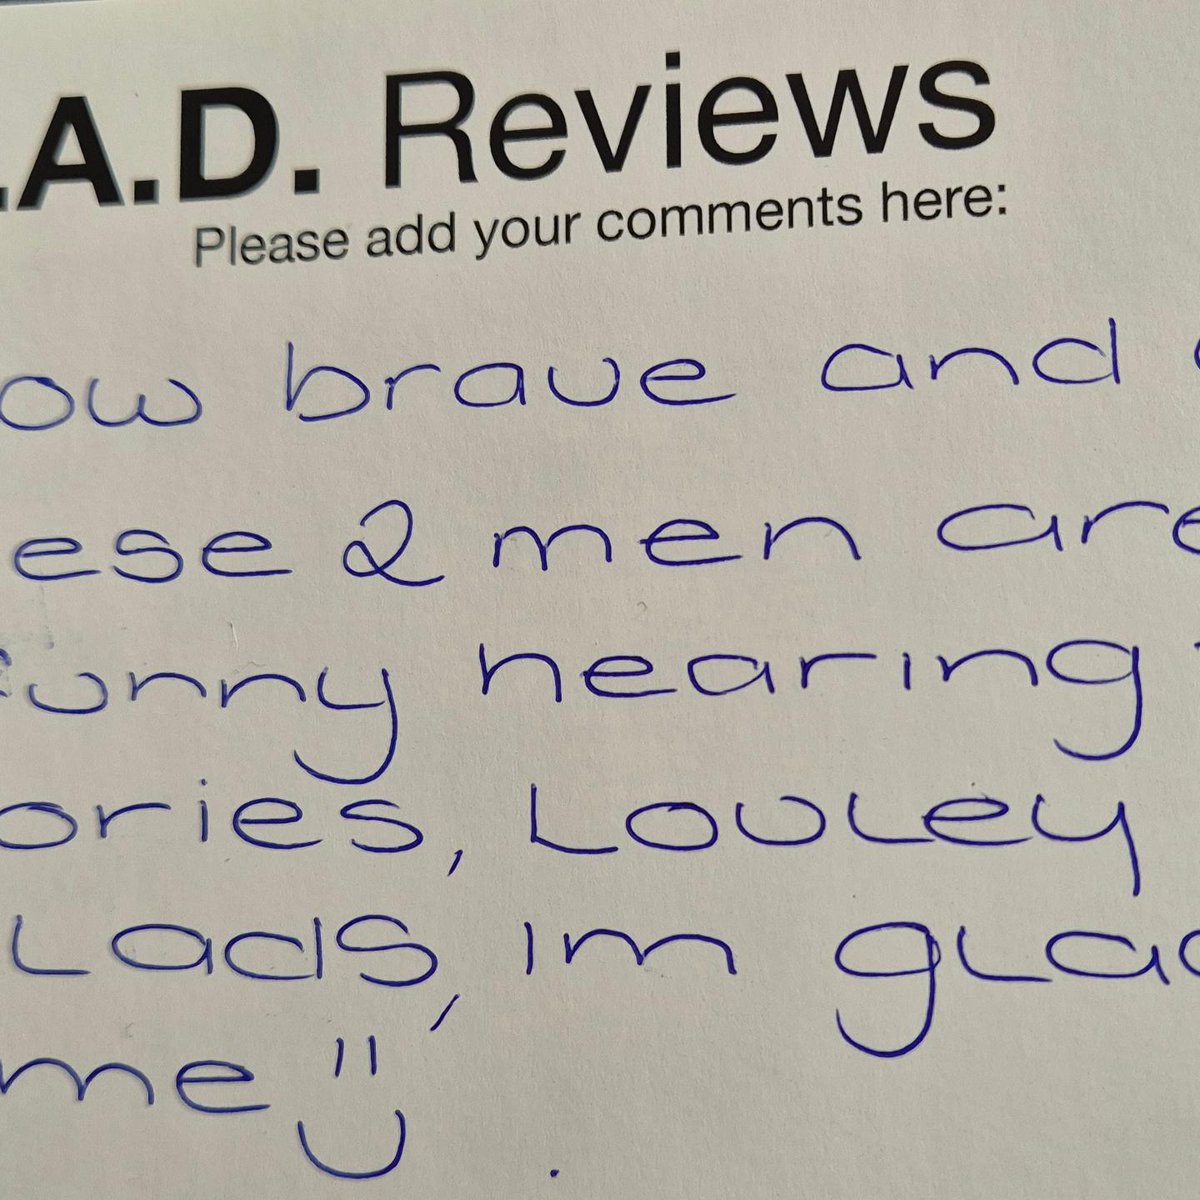 .A.D. Reviews
Please add your comments here:
ow brave and
ese 2 men are
funny hearing
ories, Lovley
Lads, im glad
me